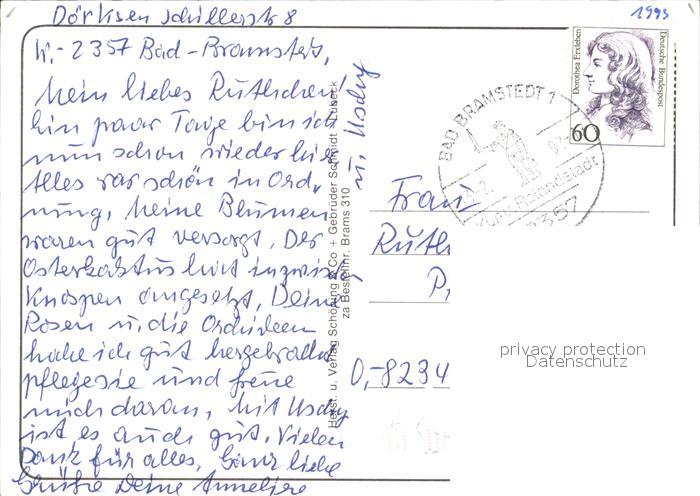 Dörksen Schillerstr 8
1993
W.- 2357 Bad-Bramstedt,
Mein liebes Ruthchen!
Ein paar Tage bin ich
nun schon wieder hier
Alles war schön in Ord,
nung, meine Blumen
waren gut versorgt. Der
Osterkaktus hat inzwisch
Knospen angesetzt, Deine
Rosen u. die Orchideen
habe ich gut hergebracht
pflege sie und freue
mich daran, Mit Uschy
ist es auch gut. Vielen
Dank für alles, Ganz liebe
Grüße Deine Anneliese
u. Uschy
Herst. u. Verlag Schöning & Co + Gebrüder Schmidt · Lübeck
za Bestellnr. Brams 310
Dorothea Erxleben
Deutsche Bundespost
60
BAD BRAMSTEDT 1
Rolandstadt
2357
Frau
Ruth
O,-8234
privacy protection
Datenschutz